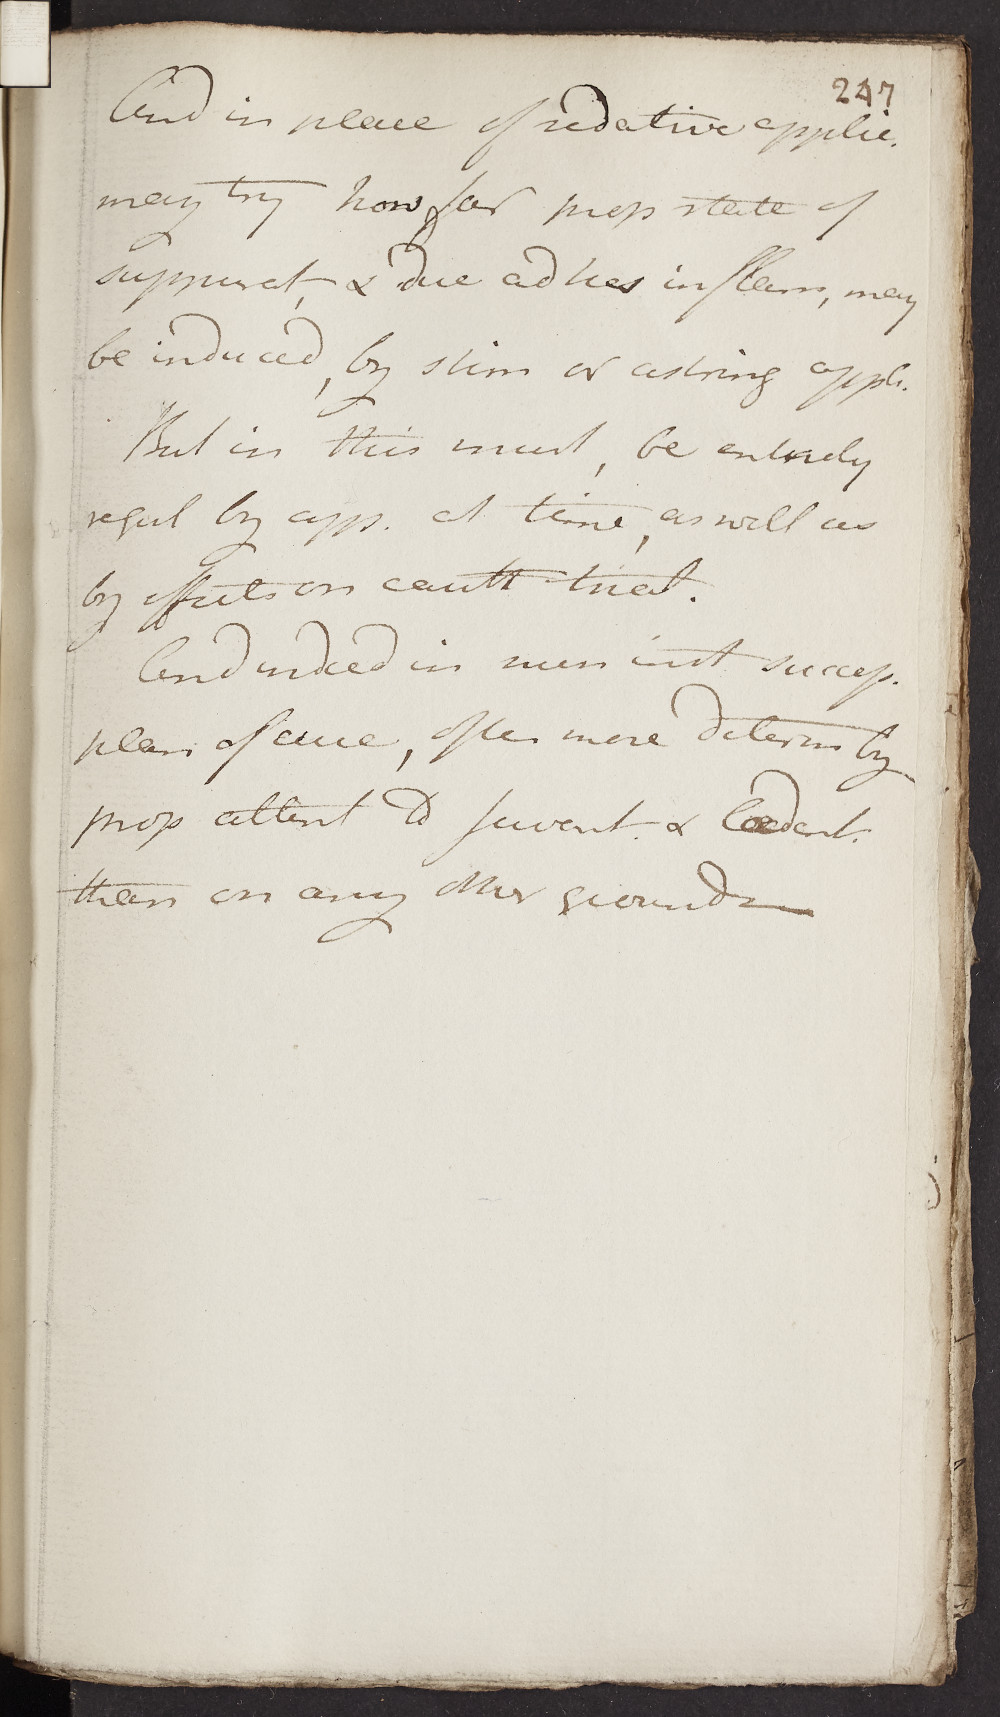 247
And in place of sedative applic.
may try how far prop state of
suppurat, & due adhes inflam, may
be induced, by stim or astring appl.
But in this must, be entirely
regul by app. at time, as well as
by effects on cautt trial.
And indeed in num inst success.
plan of cure, often more determ by
prop attent to Juvent. & Lædent.
than on any other ground